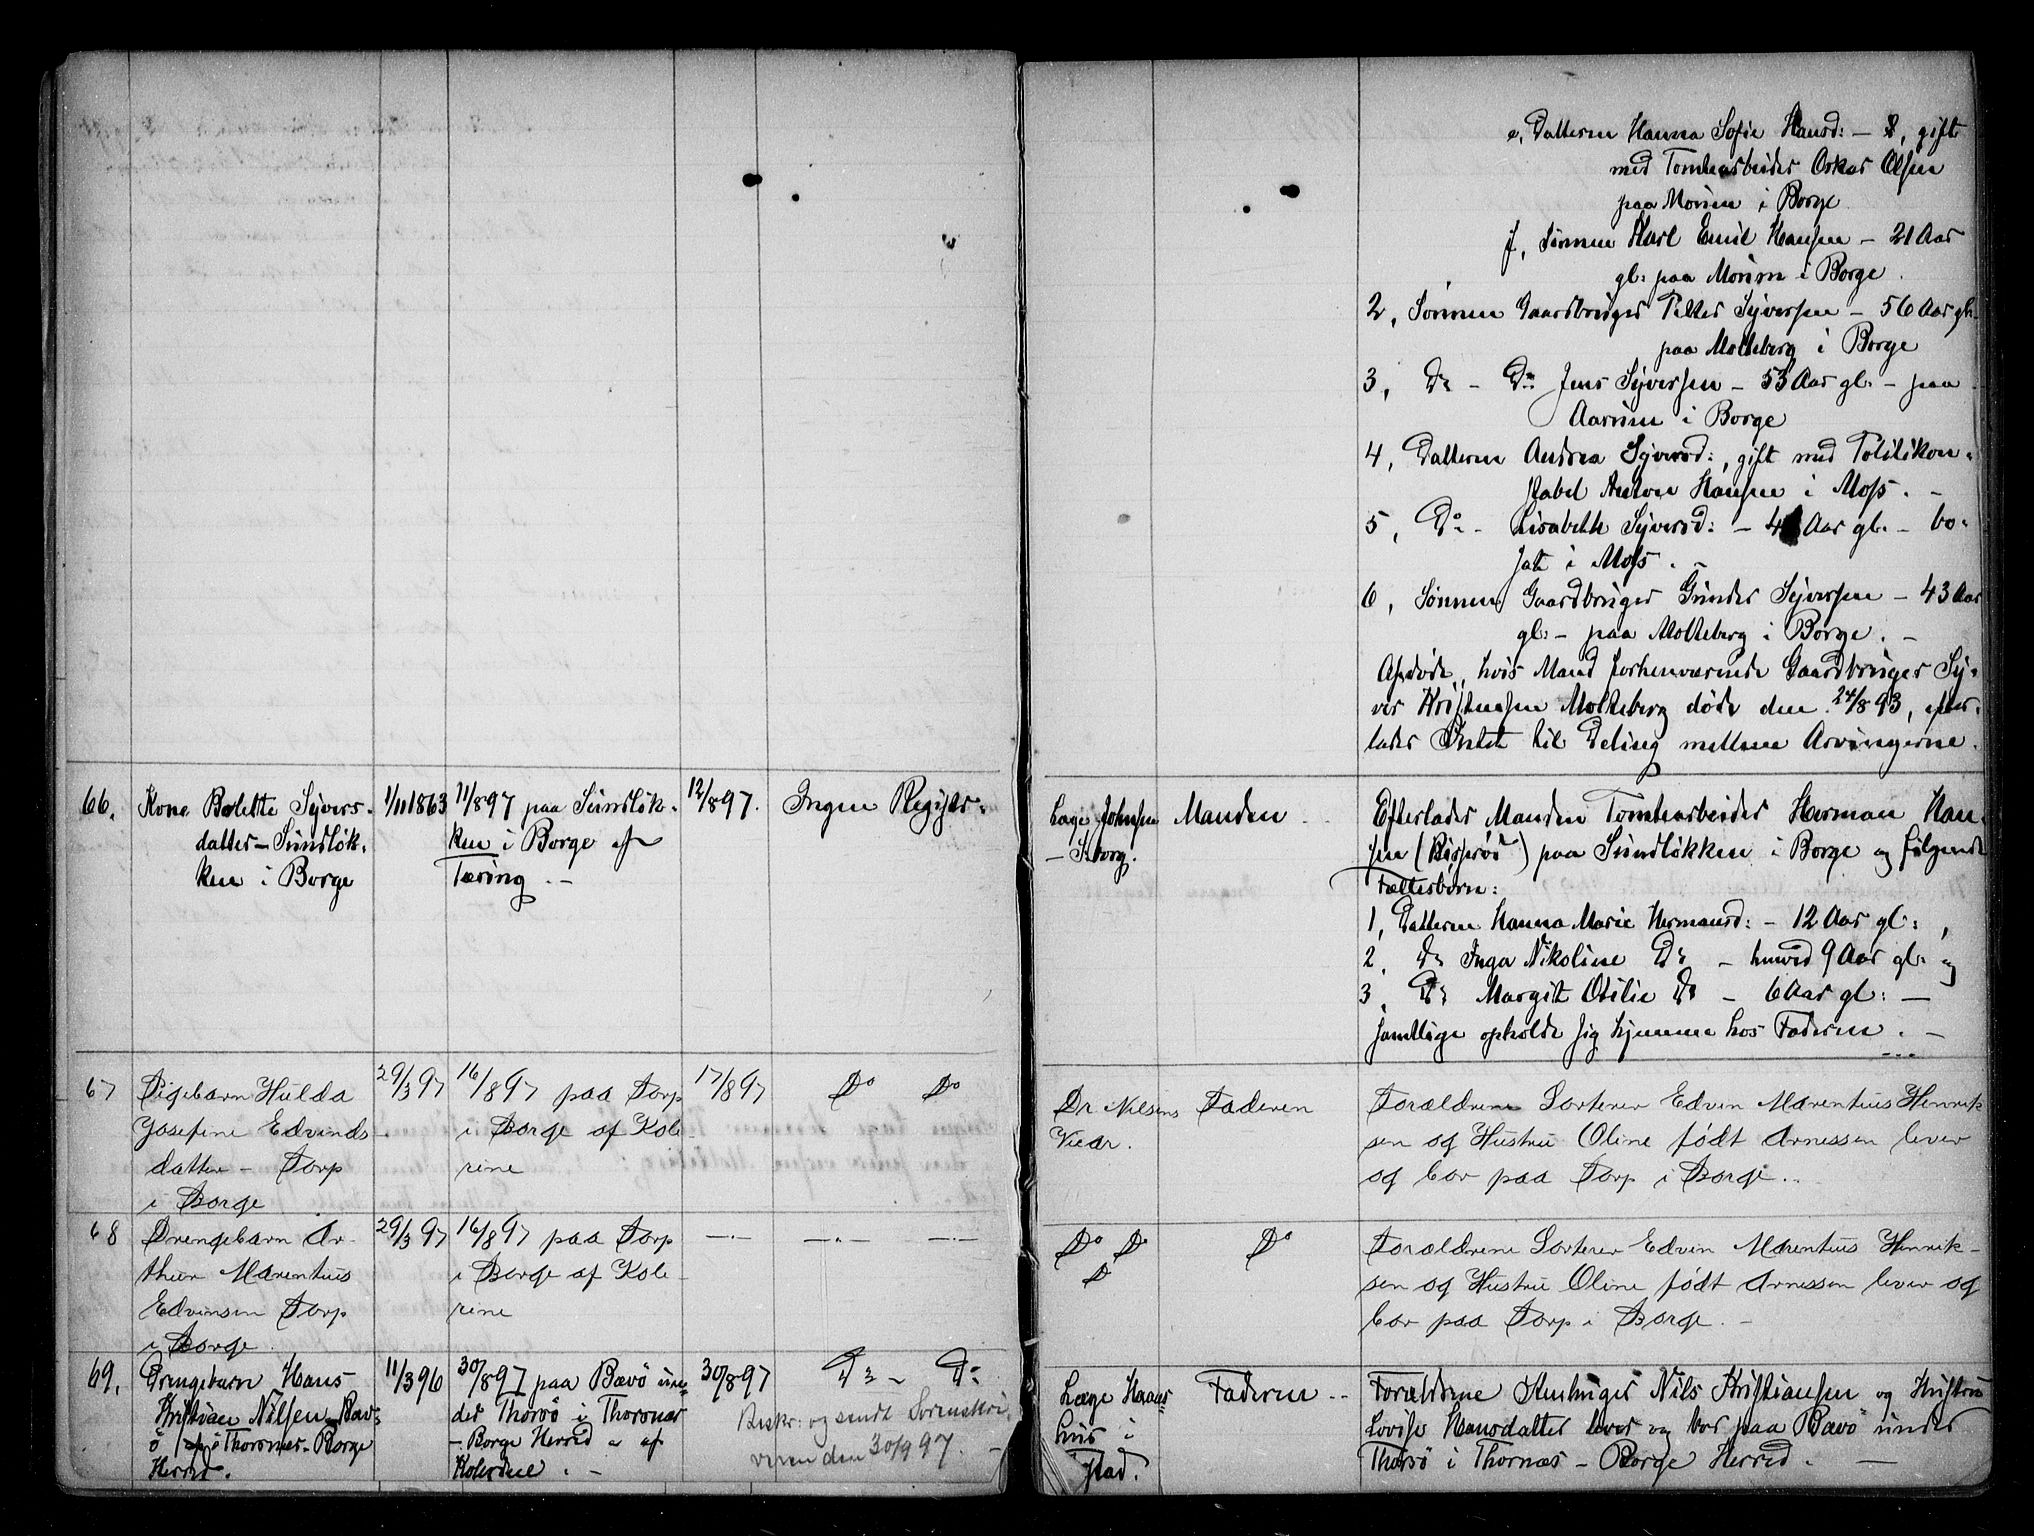 e, Datteren Hanna Sofie Hansd: — , gift
med Tomtearbeider Oskar Olsen
paa Moum i Borge
f, Sønnen Karl Emil Hansen — 21 Aar
gl: paa Moum i Borge.
2, Sønnen Gaardbruger Petter Syversen — 56 Aar gl.
paa Molteberg i Borge
3, Do — Do Jens Syversen — 53 Aar gl: — paa
Aarum i Borge
4, Datteren Andrea Syversd:, gift med Politikon-
stabel Anton Hansen i Moss. —
5, Do — Lisabeth Syversd: — Aar gl. — bo-
sat i Moss. —
6, Sønnen Gaardbruger Gunder Syversen — 43 Aar
gl: — paa Molteberg i Borge. —
Afdøde, hvis Mand forhenværende Gaardbruger Sy-
ver Kristensen Molteberg døde den 24/8 93, efter-
lader Intet til Deling mellem Arvingerne.
66. Kone Bolette Syvers-
datter — Sundløk-
ken i Borge
1/11 1863
11/8 97 paa Sundløk-
ken i Borge af
Tæring. —
12/8 97.
Ingen Register
Læge Johnsen
— S.borg.
Manden
Efterlader Manden Tomtearbeider Herman Han-
sen (Bisperød) paa Sundløkken i Borge og følgende
Fællesbørn:
1, Datteren Hanna Marie Hermansd: — 12 Aar gl:,
2, Do Inga Nikoline Do — henved 9 Aar gl: og
3, Do Margit Otilie Do — 6 Aar gl: —
samtlige opholde sig hjemme hos Faderen. —
67 Pigebarn Hulda
Josefine Edvinds-
datter — Torp
i Borge
29/3 97
16/8 97 paa Torp
i Borge af Kole-
rine
17/8 97
Do Do
Dr Nilsens
Vicar.
Faderen
Forældrene Sorterer Edvin Marentius Henrik
sen og Hustru Oline født Arnessen lever
og bor paa Torp i Borge.
68 Drengebarn Ar-
thur Marentius
Edvinsen Torp
i Borge
29/3 97
16/8 97 paa Torp
i Borge af Kole-
rine
—·— —·— —·—
Do Do
Do
Do
Forældrene Sorterer Edvin Marentius Henrik-
sen og Hustru Oline født Arnessen lever og
bor paa Torp i Borge. —
69. Drengebarn Hans
Kristian Nilsen Bæv-
ø i Thorsnes — Borge
Herred.
11/3 96
30/8 97 paa Bævø un-
der Thorsø i Thorsnæs
— Borge Herred — af
Kolerine. —
30/8 97
Do — Do
Beskr: og sendt Sorenskri-
veren den 30/9 97. —
Læge Haas-
hus i
F.stad.
Faderen
Forældrene Husbruger Nils Kristiansen og Hustru
Lovise Hansdatter lever og bor paa Bævø under
Thorsø i Thorsnæs — Borge Herred. —